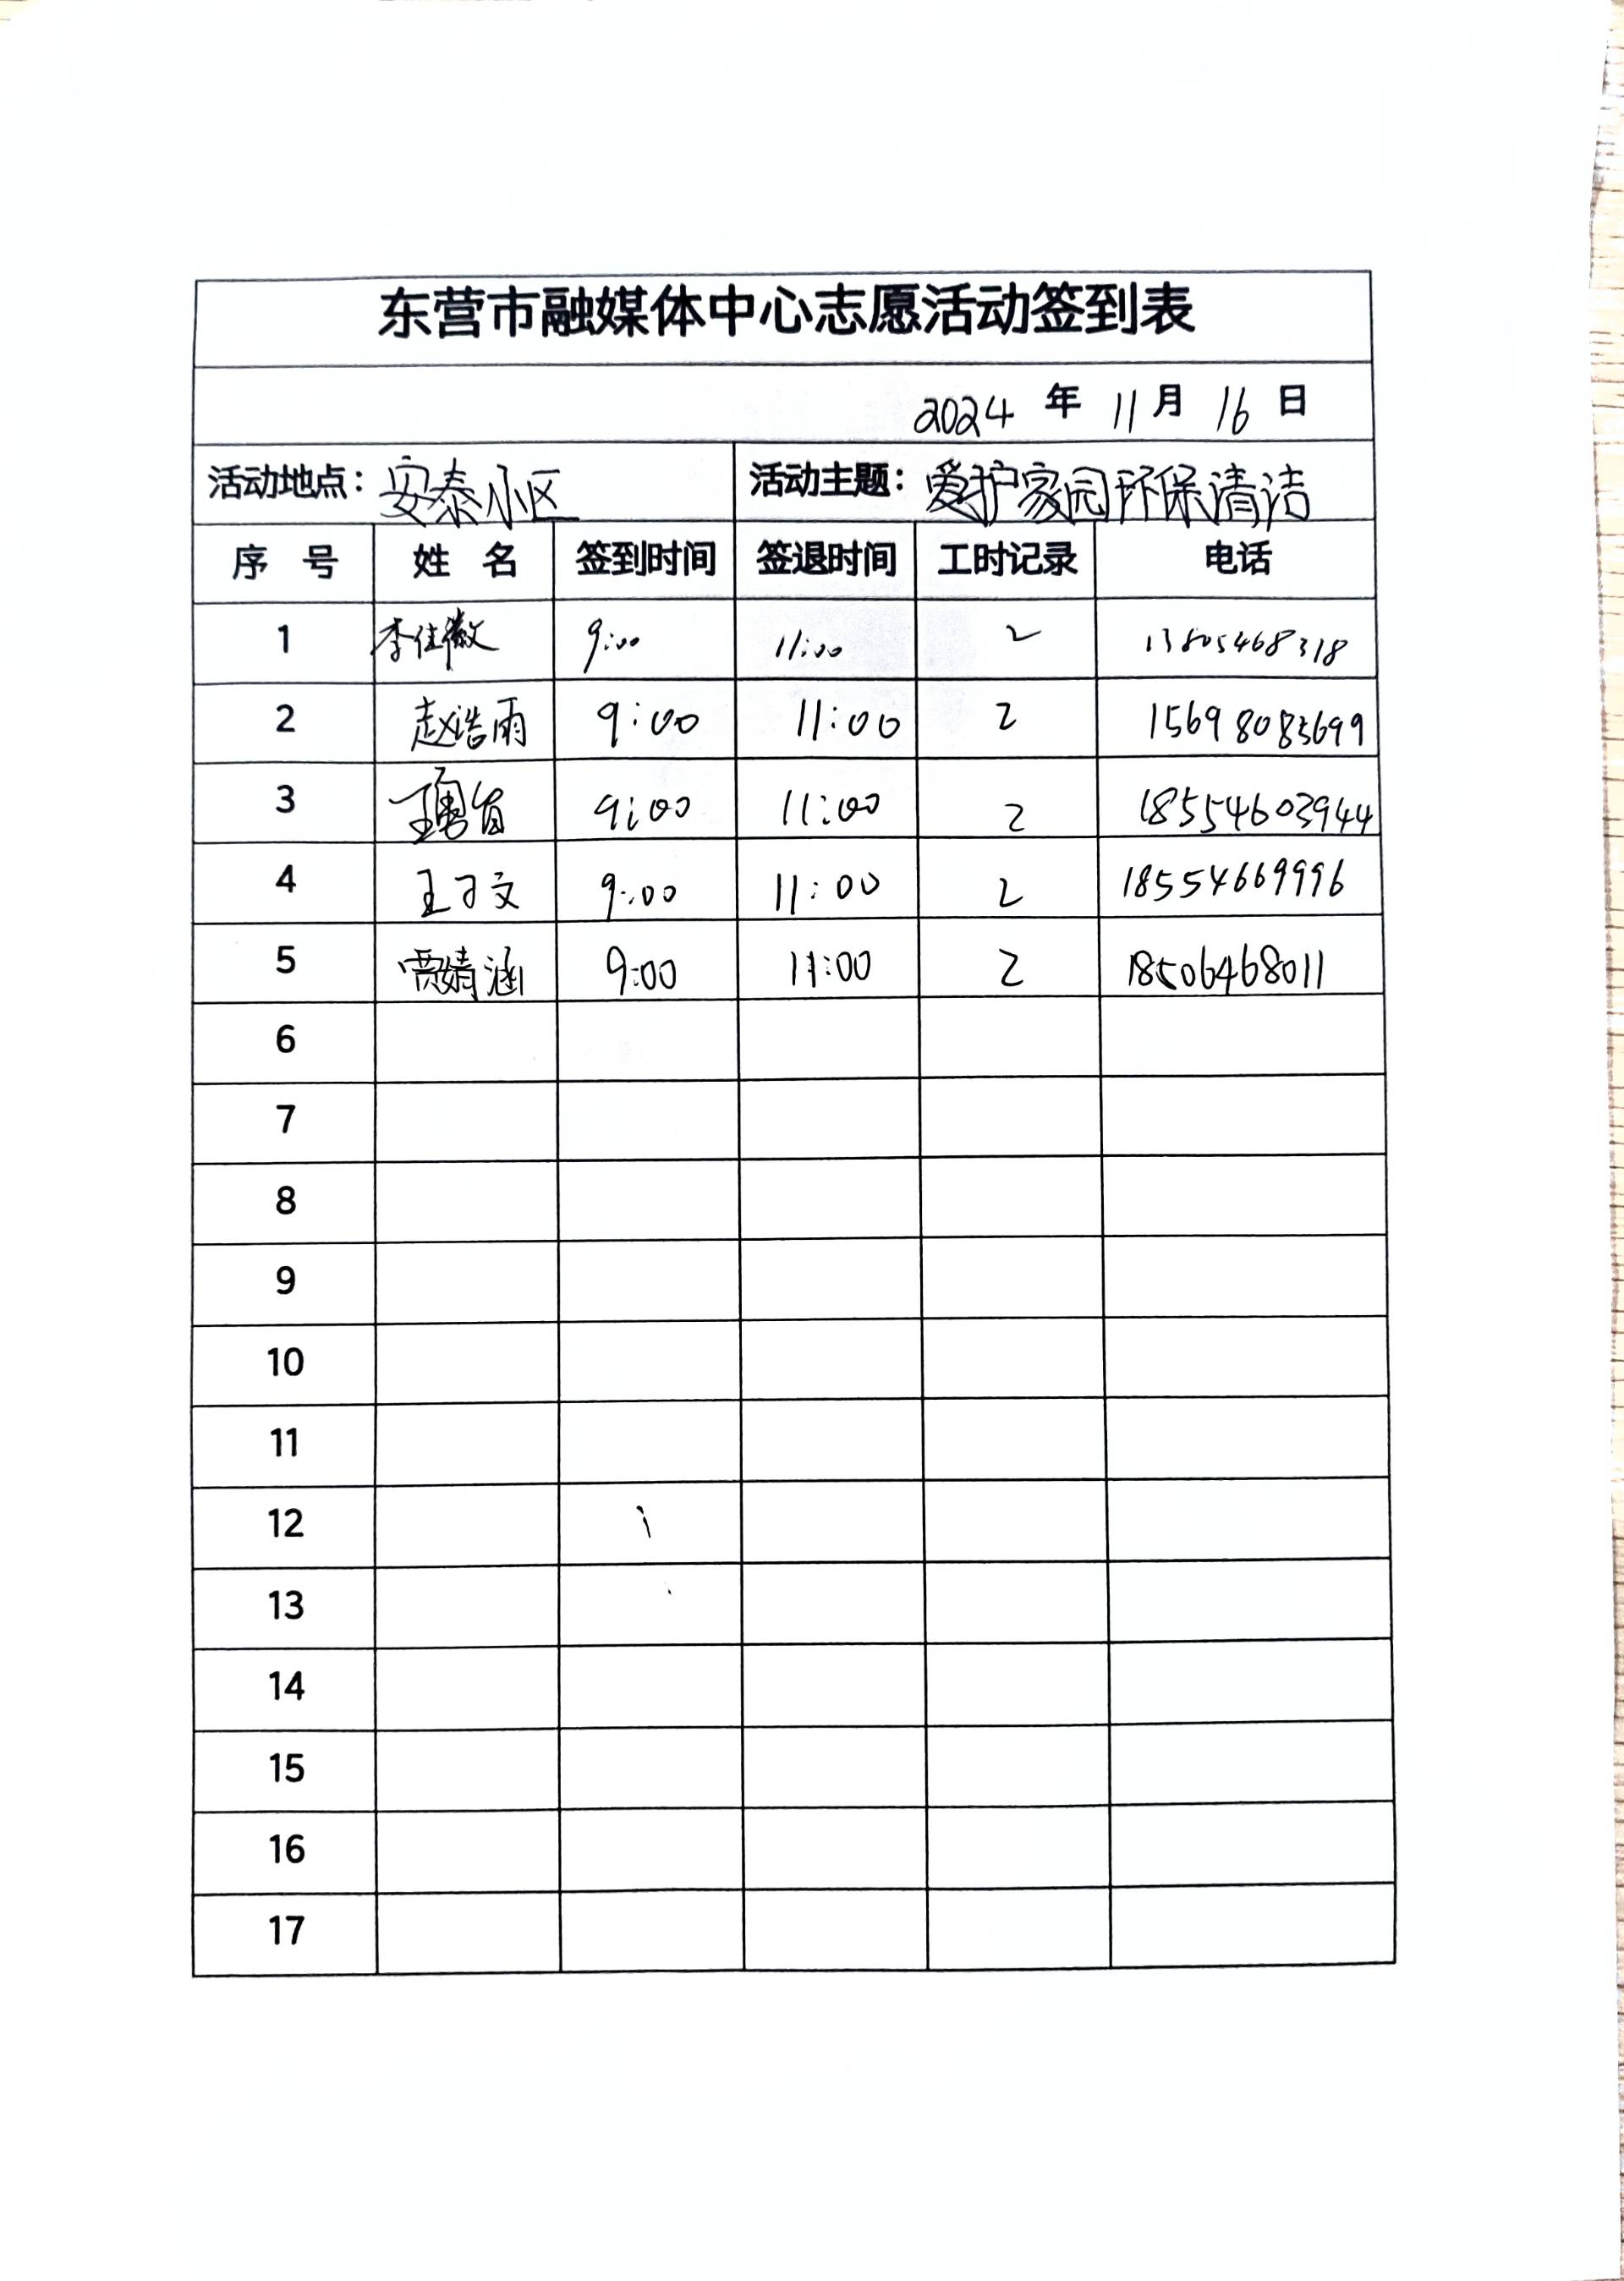 东营市融媒体中心志愿活动签到表
2024 年 11 月 16 日
活动地点：安泰小区 活动主题：爱护家园环保清洁
序 号 姓 名 签到时间 签退时间 工时记录 电话
1 李佳徽 9:00 11:00 2 13805468318
2 赵浩雨 9:00 11:00 2 15698083699
3 9:00 11:00 2 18554603944
4 王子文 9:00 11:00 2 18554669996
5 贾婧涵 9:00 11:00 2 18506468011
6
7
8
9
10
11
12
13
14
15
16
17